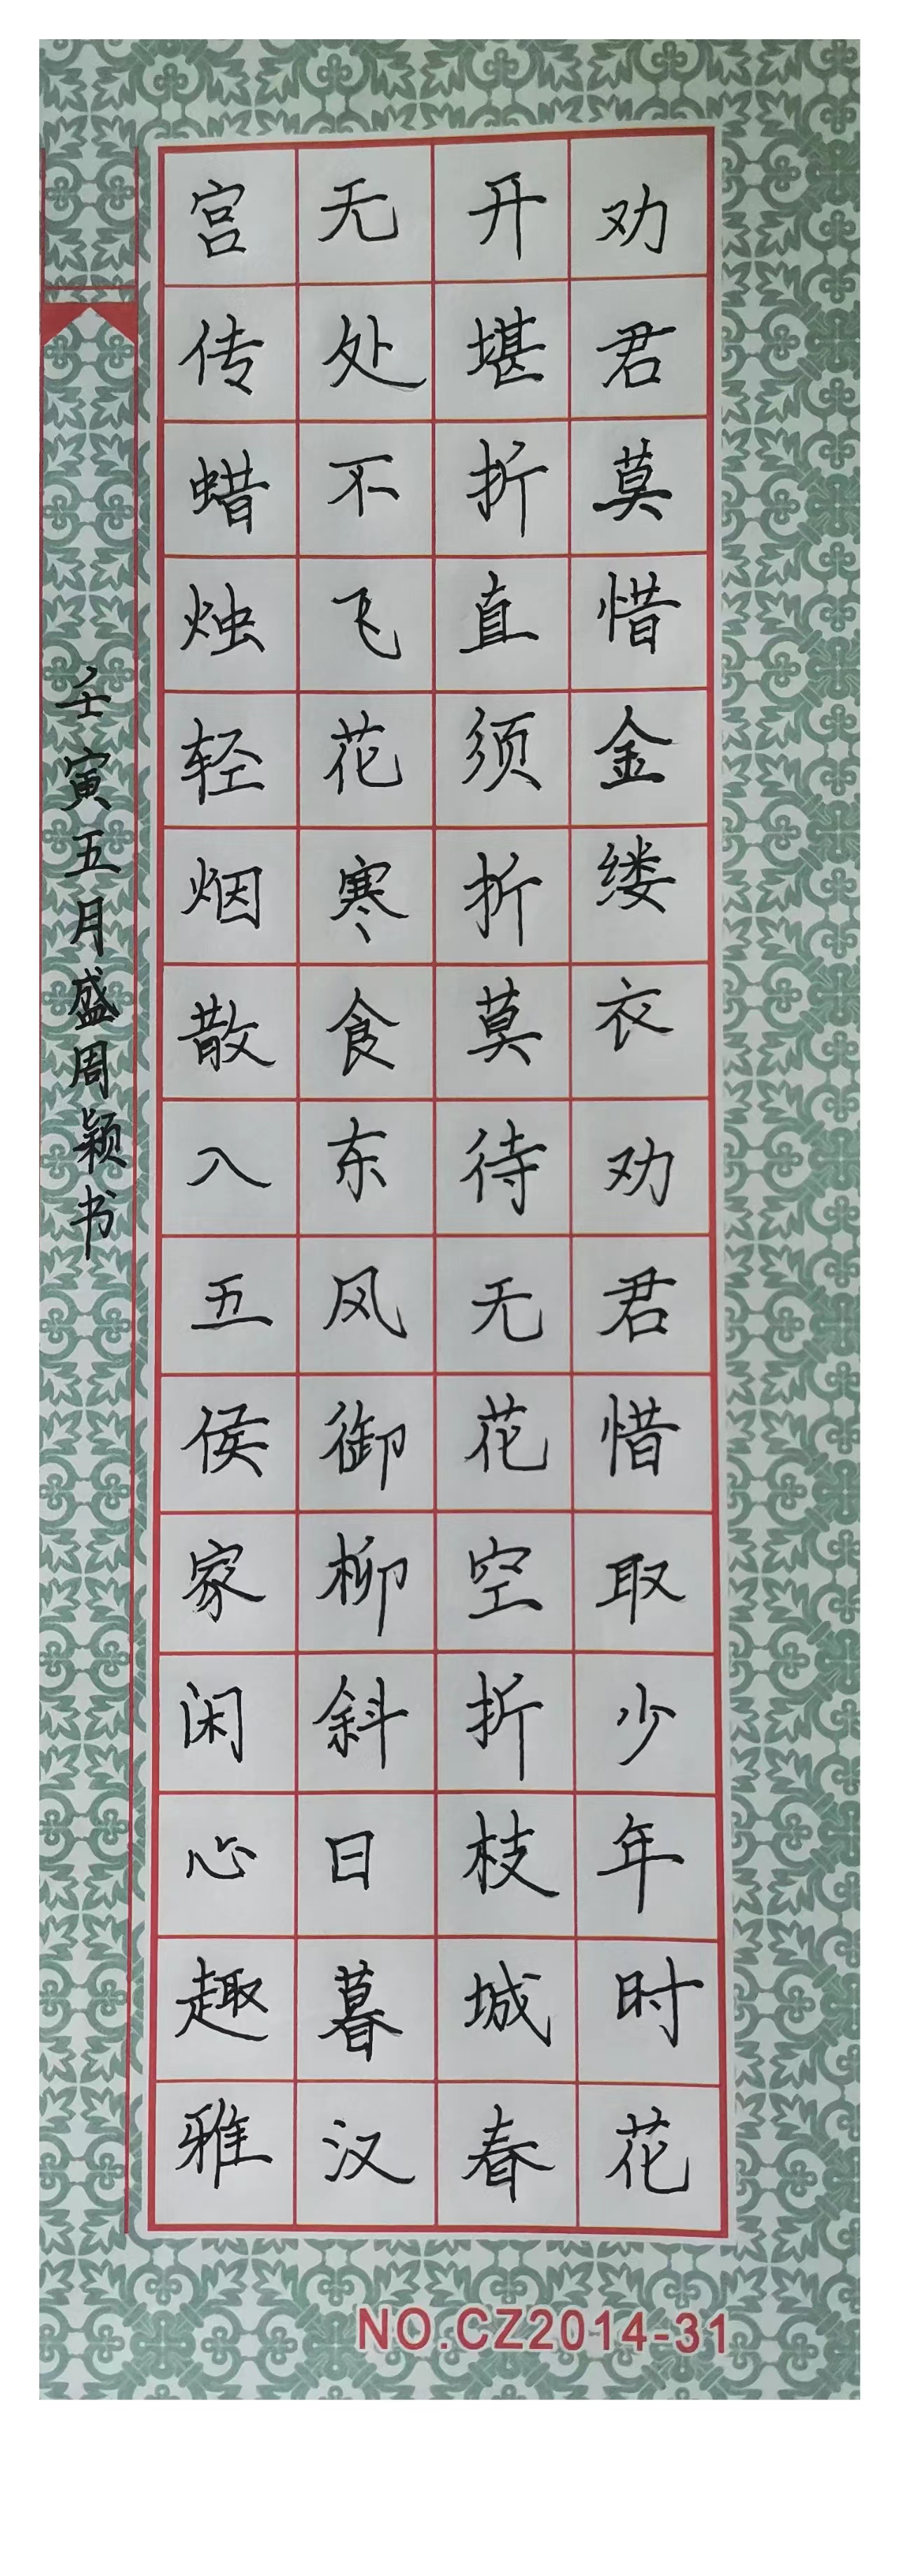 劝君莫惜金缕衣劝君惜取少年时花
开堪折直须折莫待无花空折枝城春
无处不飞花寒食东风御柳斜日暮汉
宫传蜡烛轻烟散入五侯家闲心趣雅
壬寅五月盛周颖书
NO.CZ2014-31